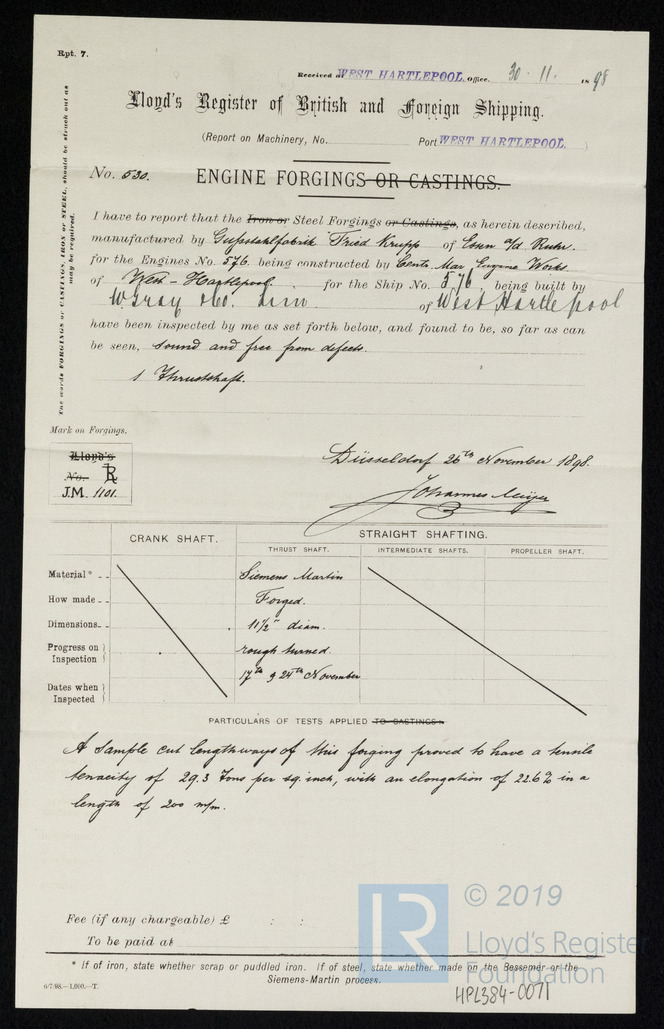 Rpt. 7.
Received at WEST HARTLEPOOL Office. 30 · 11 · 1898
Lloyd's Register of British and Foreign Shipping.
(Report on Machinery, No. Port WEST HARTLEPOOL. )
The words FORGINGS or CASTINGS, IRON or STEEL, should be struck out as
may be required.
No. 530.
ENGINE FORGINGS OR CASTINGS.
I have to report that the Iron or Steel Forgings or Castings, as herein described,
manufactured by Gussstahlfabrik Fried Krupp of Essen a/d Ruhr.
for the Engines No. 576. being constructed by Centr. Mar. Engine Works
of West-Hartlepool. for the Ship No. 576, being built by
W. Gray & Co. Lim of West Hartlepool
have been inspected by me as set forth below, and found to be, so far as can
be seen, sound and free from defects.
1 Thrustshaft.
Mark on Forgings.
Lloyd's
No. LR
J.M. 1101.
Düsseldorf 26th November 1898.
Johannes Meijer
CRANK SHAFT.
STRAIGHT SHAFTING.
THRUST SHAFT. INTERMEDIATE SHAFTS. PROPELLER SHAFT.
Material* Siemens Martin
How made Forged.
Dimensions 11 1/2" diam.
Progress on Inspection rough turned.
Dates when Inspected 17th & 24th November
PARTICULARS OF TESTS APPLIED TO CASTINGS.
A sample cut lengthways of this forging proved to have a tensile
tenacity of 29.3 Tons per sq. inch, with an elongation of 22.6% in a
length of 200 m/m.
Fee (if any chargeable) £ : :
To be paid at
* If of iron, state whether scrap or puddled iron. If of steel, state whether made on the Bessemer or the
Siemens-Martin process.
6/7/98.—1,000.—T.
HPL384-0071
LR
© 2019
Lloyd's Register
Foundation